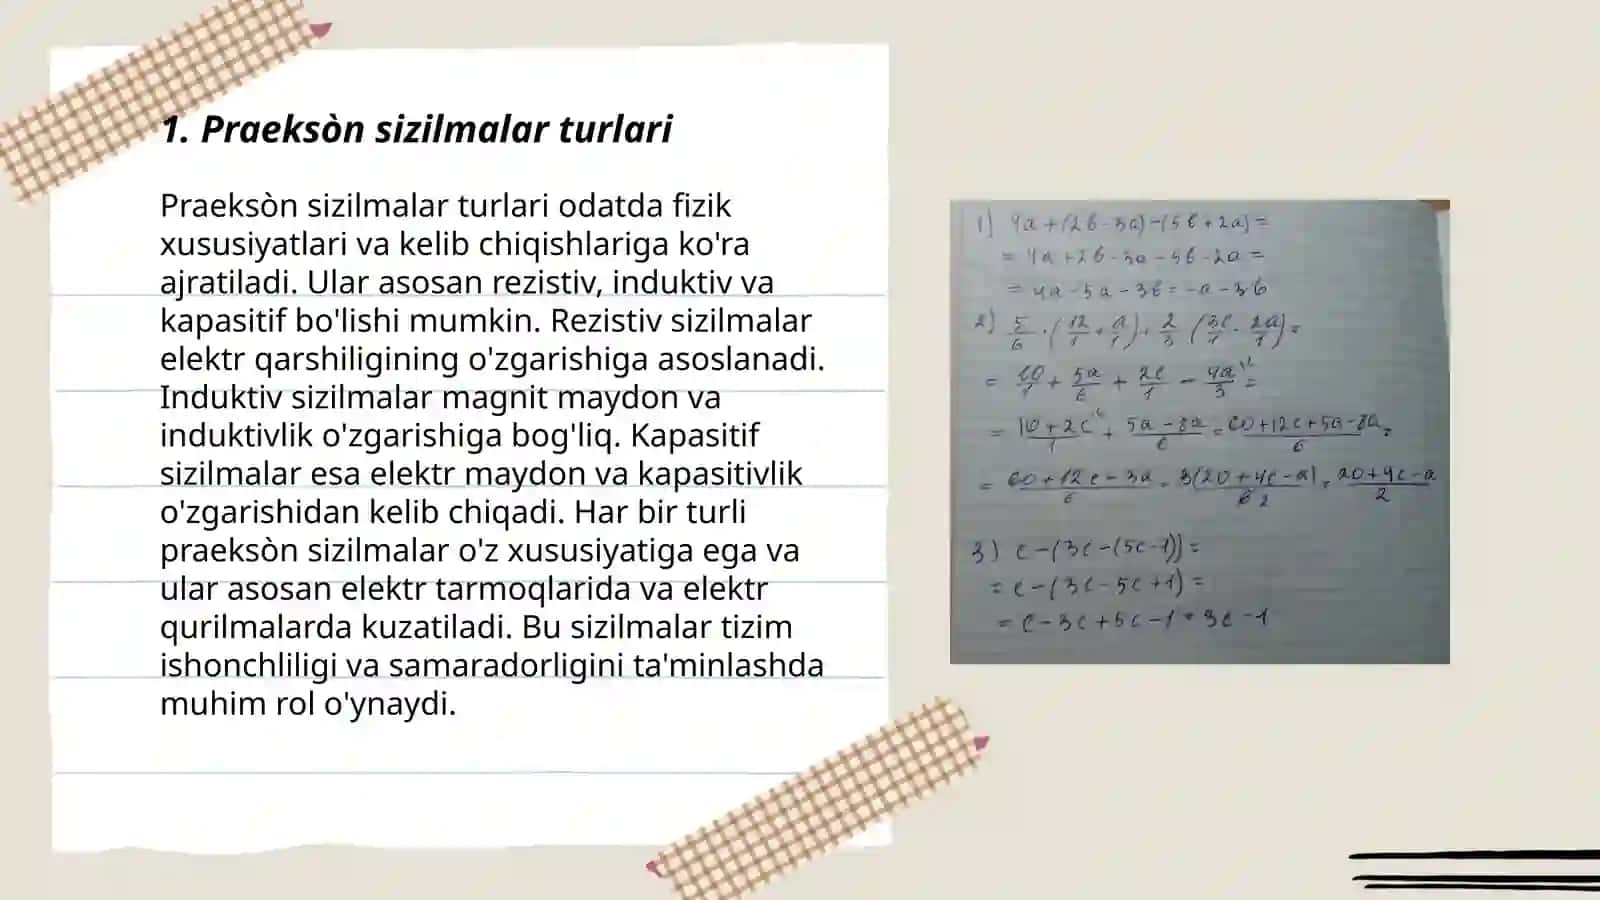 1. Praeksòn sizilmalar turlari
Praeksòn sizilmalar turlari odatda fizik
xususiyatlari va kelib chiqishlariga ko'ra
ajratiladi. Ular asosan rezistiv, induktiv va
kapasitif bo'lishi mumkin. Rezistiv sizilmalar
elektr qarshiligining o'zgarishiga asoslanadi.
Induktiv sizilmalar magnit maydon va
induktivlik o'zgarishiga bog'liq. Kapasitif
sizilmalar esa elektr maydon va kapasitivlik
o'zgarishidan kelib chiqadi. Har bir turli
praeksòn sizilmalar o'z xususiyatiga ega va
ular asosan elektr tarmoqlarida va elektr
qurilmalarda kuzatiladi. Bu sizilmalar tizim
ishonchliligi va samaradorligini ta'minlashda
muhim rol o'ynaydi.
1) 4a+(2b-3a)-(5b+2a)=
= 4a+2b-3a-5b-2a=
= 4a-5a-3b=-a-3b
2) 5/6·(12/1+a/1)+2/3(3c/1-2a/1)=
= 10/1+5a/6+2c/1-4a/3=
= 10+2c/1+5a-8a/6=60+12c+5a-8a/6=
= 60+12c-3a/6=3(20+4c-a)/6 2=20+4c-a/2
3) c-(3c-(5c-1))=
= c-(3c-5c+1)=
= c-3c+5c-1=3c-1